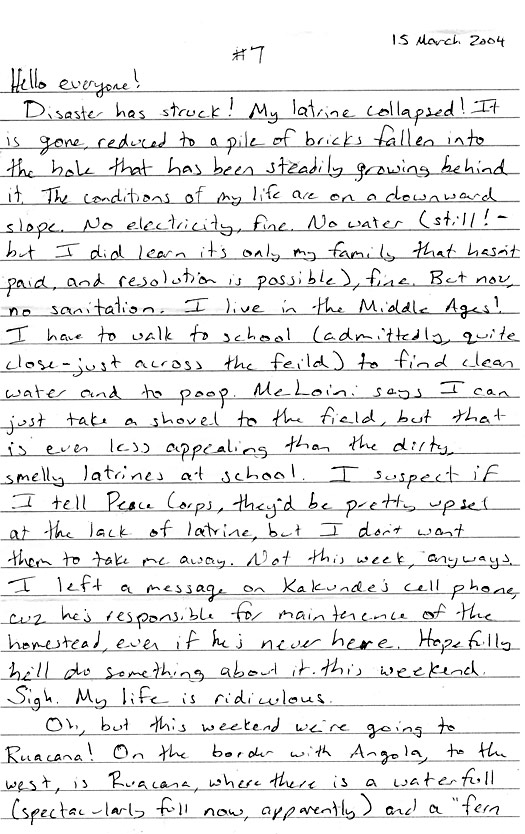 15 March 2004
#7
Hello everyone!
Disaster has struck! My latrine collapsed! It
is gone, reduced to a pile of bricks fallen into
the hole that has been steadily growing behind
it. The conditions of my life are on a downward
slope. No electricity, fine. No water (still! -
but I did learn it's only my family that hasn't
paid, and resolution is possible), fine. But now,
no sanitation. I live in the Middle Ages!
I have to walk to school (admittedly, quite
close - just across the feild) to find clean
water and to poop. MeLoini says I can
just take a shovel to the field, but that
is even less appealing than the dirty,
smelly latrines at school. I suspect if
I tell Peace Corps, they'd be pretty upset
at the lack of latrine, but I don't want
them to take me away. Not this week, anyways.
I left a message on Kakunde's cell phone,
cuz he's responsible for mainterence of the
homestead, even if he's never here. Hopefully
he'll do something about it this weekend.
Sigh. My life is ridiculous.
Oh, but this weekend we're going to
Ruacana! On the border with Angola, to the
west, is Ruacana, where there is a waterfull
(spectac-larly full now, apparently) and a "fern